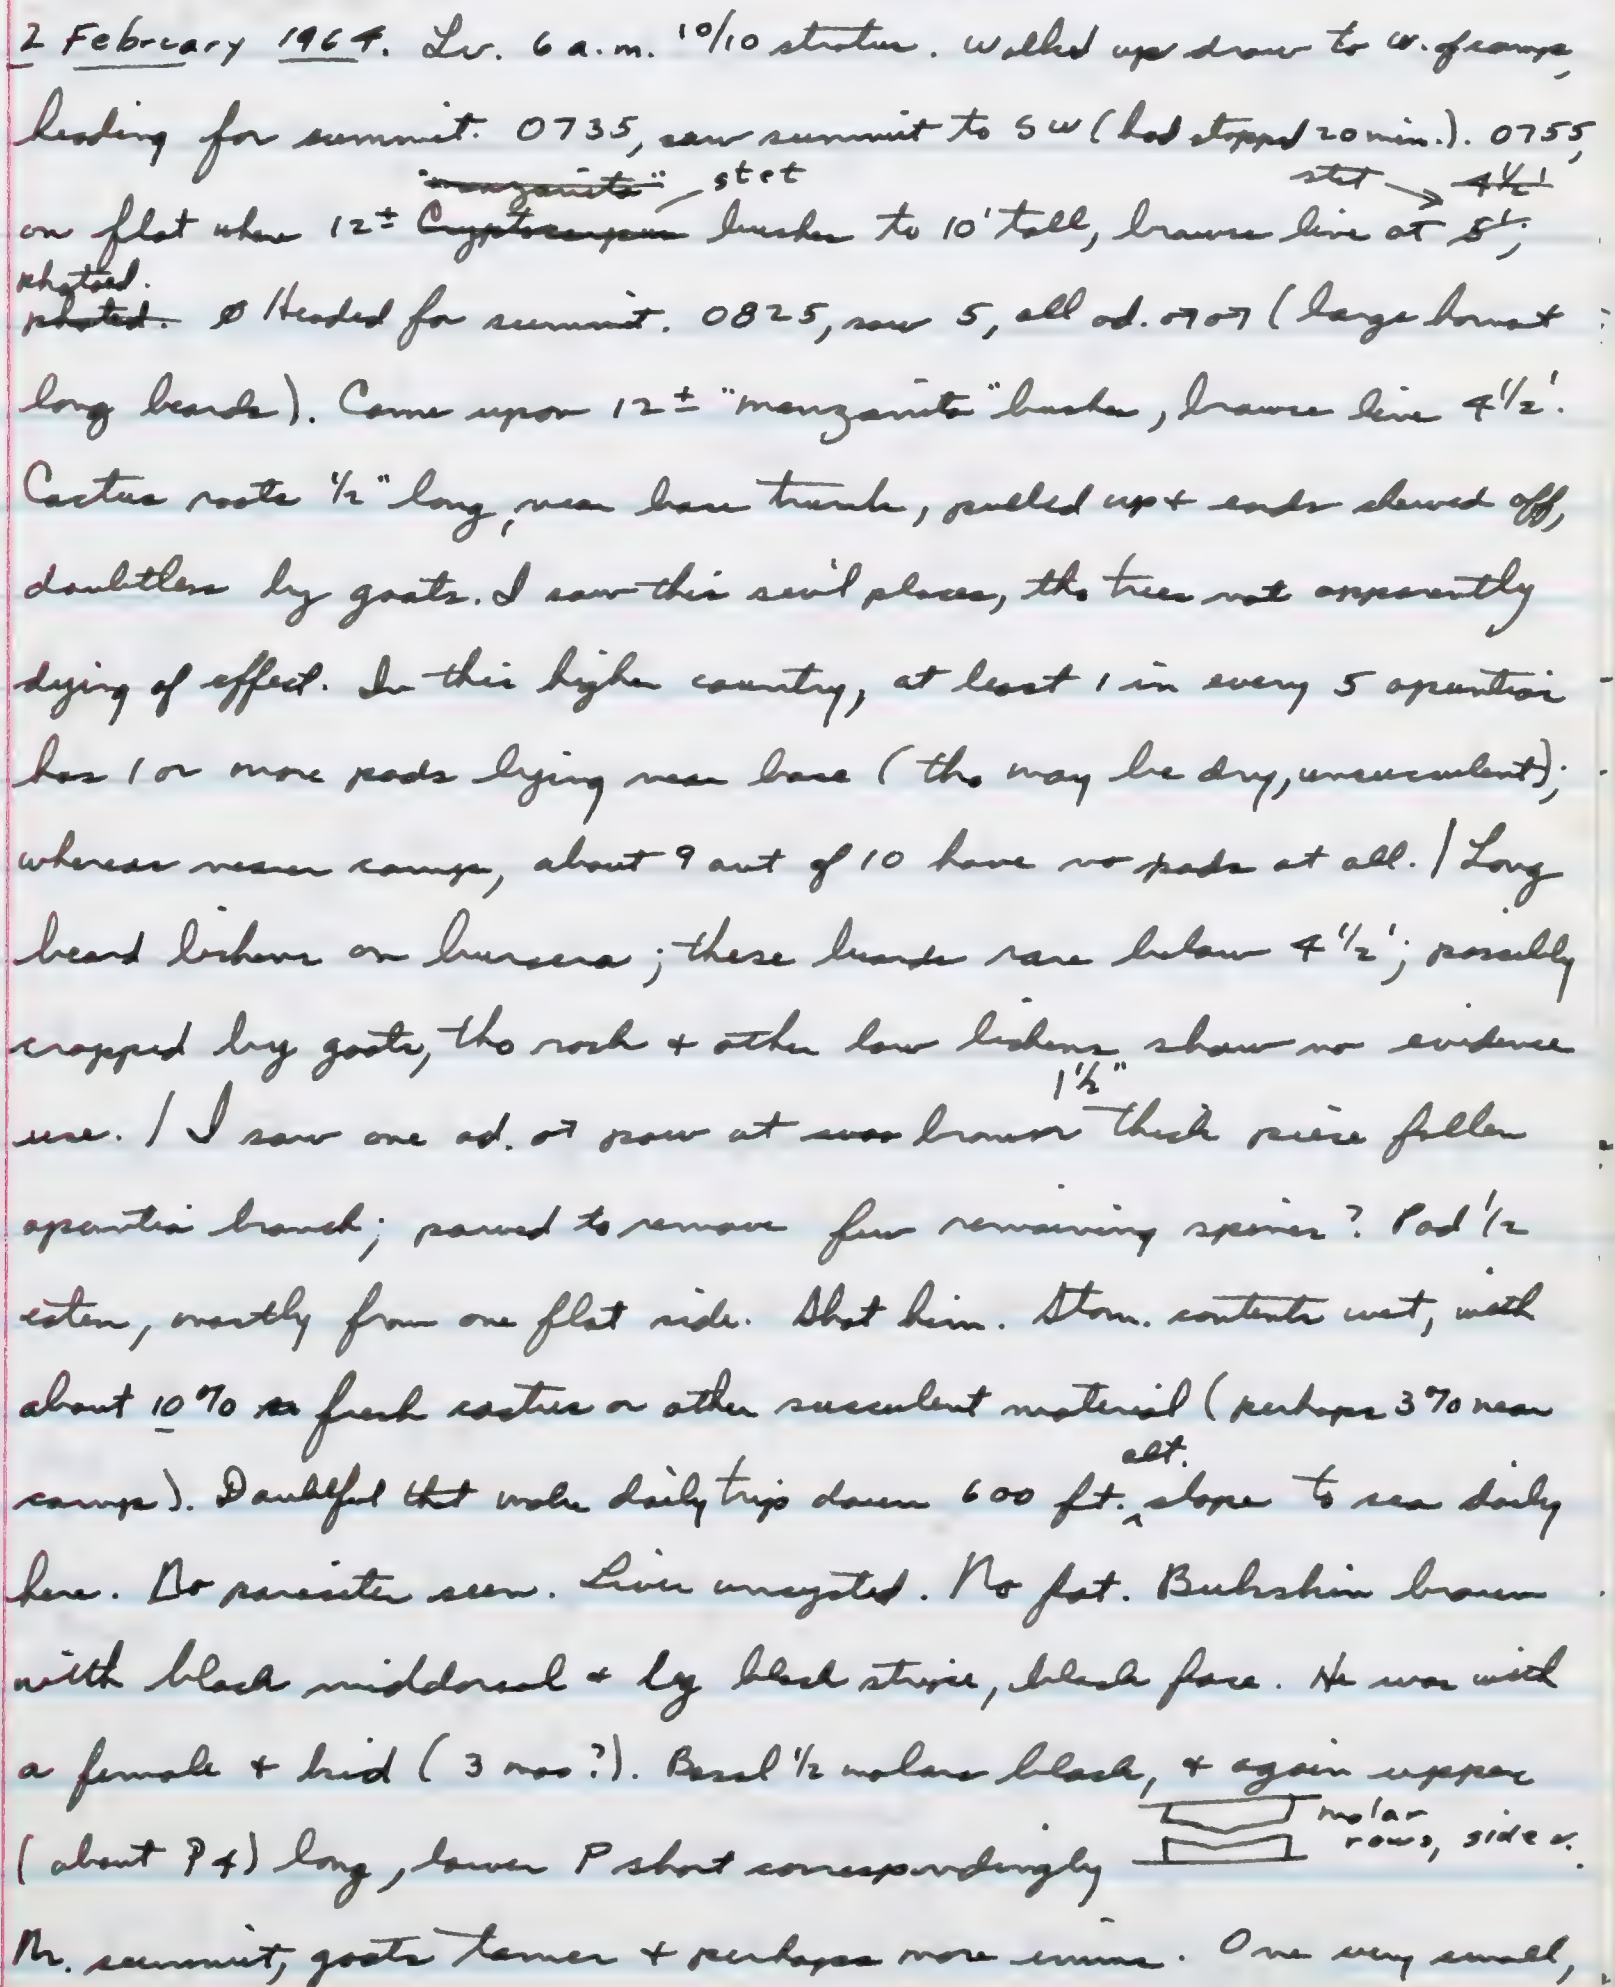 2 February 1964. Lv. 6 a.m. 10/10 stratus. Walked up draw to W. of camp,
heading for summit. 0735, saw summit to SW (had stopped 20 min.). 0755,
"manzanita" stet stet → 4½'
on flat where 12± Cryptocarpus bushes to 10' tall, browse line at 5';
photoed.
photed. Headed for summit. 0825, saw 5, all ad. ♂♂ (large horns +
long beards). Came upon 12± "manzanita" bushes, browse line 4½'.
Cactus roots ½" long, near base trunk, pulled up + ends chewed off,
doubtless by goats. I saw this sev'l places, tho trees not apparently
dying of effect. In this higher country, at least 1 in every 5 opuntias
has 1 or more pads lying near base (tho may be dry, unsucculent);
whereas nearer camp, about 9 out of 10 have no pads at all. / Long
beard lichens on bursera; these beards rare below 4½'; possibly
cropped by goats, tho rock + other low lichens show no evidence
1½"
use. / I saw one ad. ♂ paw at brown thick piece fallen
opuntia branch; pawed to remove few remaining spines? Pad ½
eaten, mostly from one flat side. Shot him. Stom. contents wet, with
about 10% fresh cactus or other succulent material (perhaps 3% near
alt.
camp). Doubtful that make daily trip down 600 ft. ^ slope to sea daily
here. No parasites seen. Liver uncysted. No fat. Buckskin brown
with black middorsal + leg black stripe, black face. He was with
a female + kid (3 mos?). Basal ½ molars black, + again upper
molar
rows, side v.
(about P4) long, lower P short correspondingly
Nr. summit, goats tamer + perhaps more . One very small,